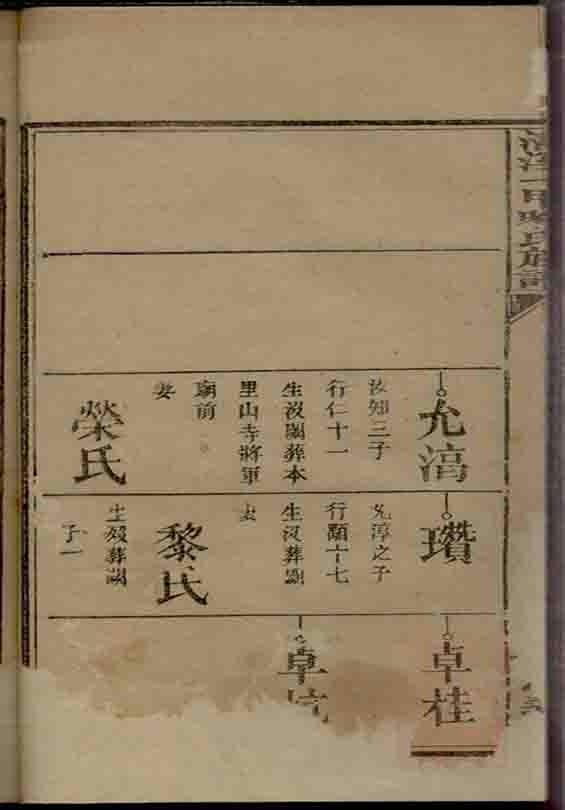 氏族譜
允滈
汝知三子
行仁十一
生沒闕葬本
里山寺將軍
廟前
妻
榮氏
瓚
之子
行顯十七
生沒葬闕
妻
黎氏
生歿葬闕
子一
卓桂
卓